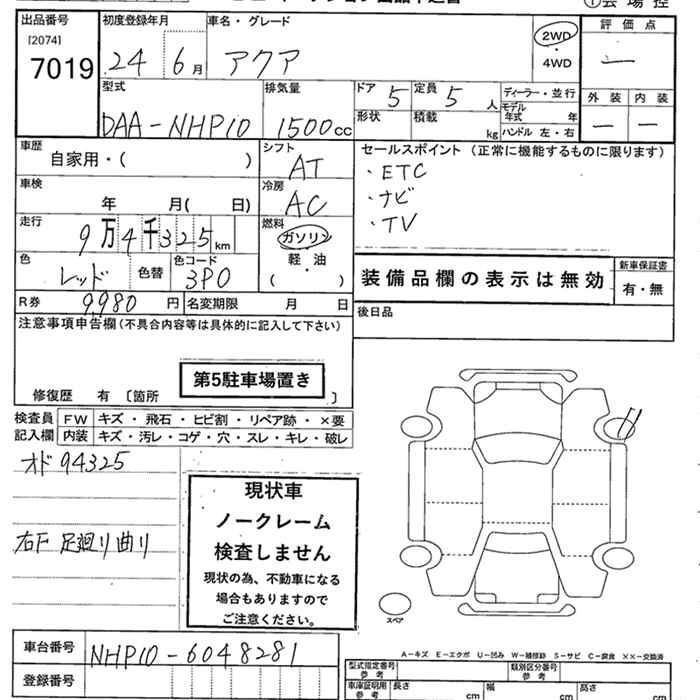 ①会場控
出品番号 初度登録年月 車名・グレード 評価点
[2074]
7019 24 6月 アクア 2WD・4WD —
型式 排気量 ドア 5 定員 5人 ディーラー・並行 外装 内装
形状 積載 kg モデル年式 年
DAA-NHP10 1500cc ハンドル 左・右 — —
車歴 自家用・( ) シフト AT セールスポイント (正常に機能するものに限ります)
・ETC
車検 年 月( 日) 冷房 AC ・ナビ
・TV
走行 9万4千325km 燃料 ガソリン
軽・油
( )
色 レッド 色替 色コード 3P0 装備品欄の表示は無効 新車保証書
有・無
R券 9,980円 名変期限 月 日 後日品
注意事項申告欄(不具合内容等は具体的に記入して下さい)
第5駐車場置き
修復歴 有 〔箇所 〕
検査員 FW キズ・飛石・ヒビ割・リペア跡・×要
記入欄 内装 キズ・汚レ・コゲ・穴・スレ・キレ・破レ
オド94325
現状車
ノークレーム
右F 足廻り曲り 検査しません
現状の為、不動車になる
場合もありますので
ご注意ください。
スペア
車台番号 NHP10-6048281
A－キズ E－エクボ U－凹み W－補修跡 S－サビ C－腐食 ××－交換済
登録番号
型式指定番号 参考 類別区分番号 参考
車庫証明用 参考 長さ cm 幅 cm 高さ cm